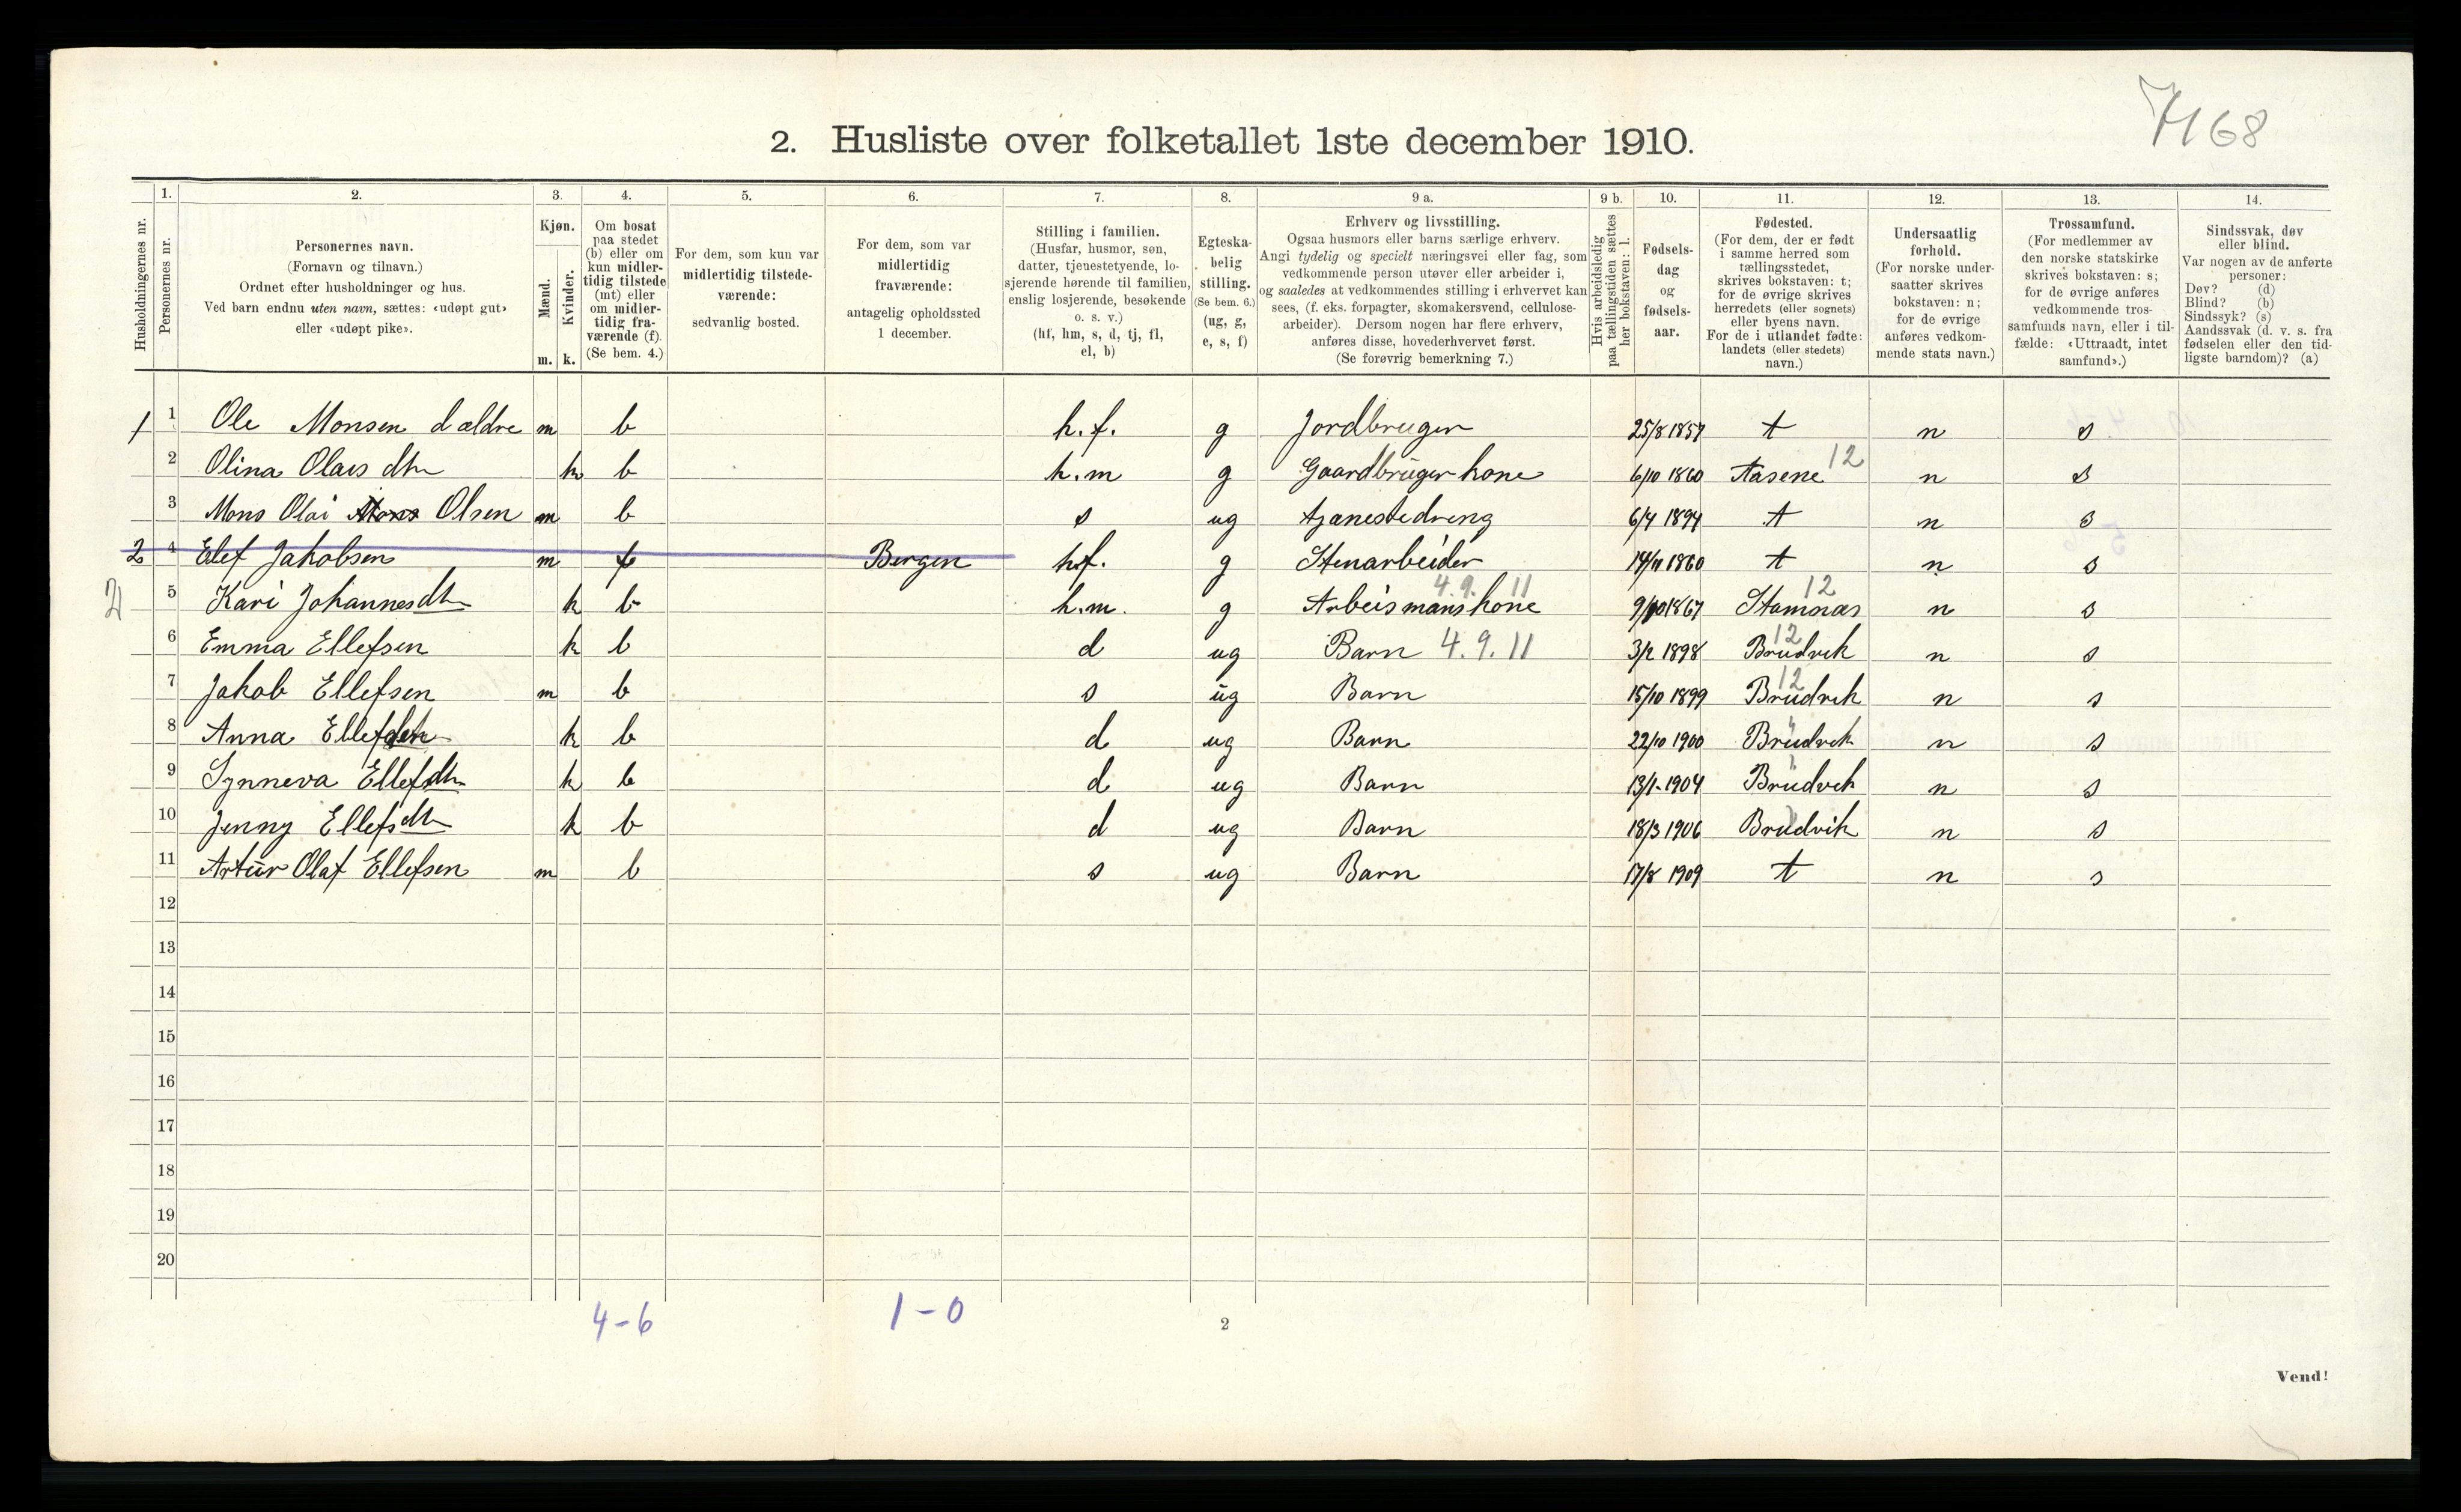 7168
2. Husliste over folketallet 1ste december 1910.
Husholdningernes nr.
1. Personernes nr.
2. Personernes navn. (Fornavn og tilnavn.) Ordnet efter husholdninger og hus. Ved barn endnu uten navn, sættes: «udøpt gut» eller «udøpt pike».
3. Kjøn. Mænd. m. Kvinder. k.
4. Om bosat paa stedet (b) eller om kun midlertidig tilstede (mt) eller om midlertidig fraværende (f). (Se bem. 4.)
5. For dem, som kun var midlertidig tilstedeværende: sedvanlig bosted.
6. For dem, som var midlertidig fraværende: antagelig opholdssted 1 december.
7. Stilling i familien. (Husfar, husmor, søn, datter, tjenestetyende, losjerende hørende til familien, enslig losjerende, besøkende o. s. v.) (hf, hm, s, d, tj, fl, el, b)
8. Egteskabelig stilling. (Se bem. 6.) (ug, g, e, s, f)
9 a. Erhverv og livsstilling. Ogsaa husmors eller barns særlige erhverv. Angi tydelig og specielt næringsvei eller fag, som vedkommende person utøver eller arbeider i, og saaledes at vedkommendes stilling i erhvervet kan sees, (f. eks. forpagter, skomakersvend, cellulosearbeider). Dersom nogen har flere erhverv, anføres disse, hovederhvervet først. (Se forøvrig bemerkning 7.)
9 b. Hvis arbeidsledig paa tællingstiden sættes her bokstaven: l.
10. Fødselsdag og fødselsaar.
11. Fødested. (For dem, der er født i samme herred som tællingsstedet, skrives bokstaven: t; for de øvrige skrives herredets (eller sognets) eller byens navn. For de i utlandet fødte: landets (eller stedets) navn.)
12. Undersaatlig forhold. (For norske undersaatter skrives bokstaven: n; for de øvrige anføres vedkommende stats navn.)
13. Trossamfund. (For medlemmer av den norske statskirke skrives bokstaven: s; for de øvrige anføres vedkommende trossamfunds navn, eller i tilfælde: «Uttraadt, intet samfund».)
14. Sindssvak, døv eller blind. Var nogen av de anførte personer: Døv? (d) Blind? (b) Sindssyk? (s) Aandssvak (d. v. s. fra fødselen eller den tidligste barndom)? (a)
1 1 Ole Monsen d ældre m b h.f. g Jordbruger 25/8 1857 t n s
2 Olina Olais dtr k b h.m g Gaardbruger kone 6/10 1860 Aasene 12 n s
3 Mons Olai Mons Olsen m b s ug tjænestedreng 6/4 1894 t n s
2 4 Elef Jakobsen m f Bergen hf. g Stenarbeider 14/11 1860 t n s
2 5 Kari Johannesdtr k b h.m. g Arbeismans kone 4.9.11 9/10 1867 Stamnæs 12 n s
6 Emma Ellefsen k b d ug Barn 4.9.11 3/2 1898 Brudvik 12 n s
7 Jakob Ellefsen m b s ug Barn 15/10 1899 Brudvik 12 n s
8 Anna Ellefsdtr k b d ug Barn 22/10 1900 Brudvik " n s
9 Synneva Ellefsdtr k b d ug Barn 13/1-1904 Brudvik " n s
10 Jenny Ellefsdtr k b d ug Barn 18/3 1906 Brudvik n s
11 Artur Olaf Ellefsen m b s ug Barn 17/8 1909 t n s
12
13
14
15
16
17
18
19
20
4-6 1-0
2
Vend!